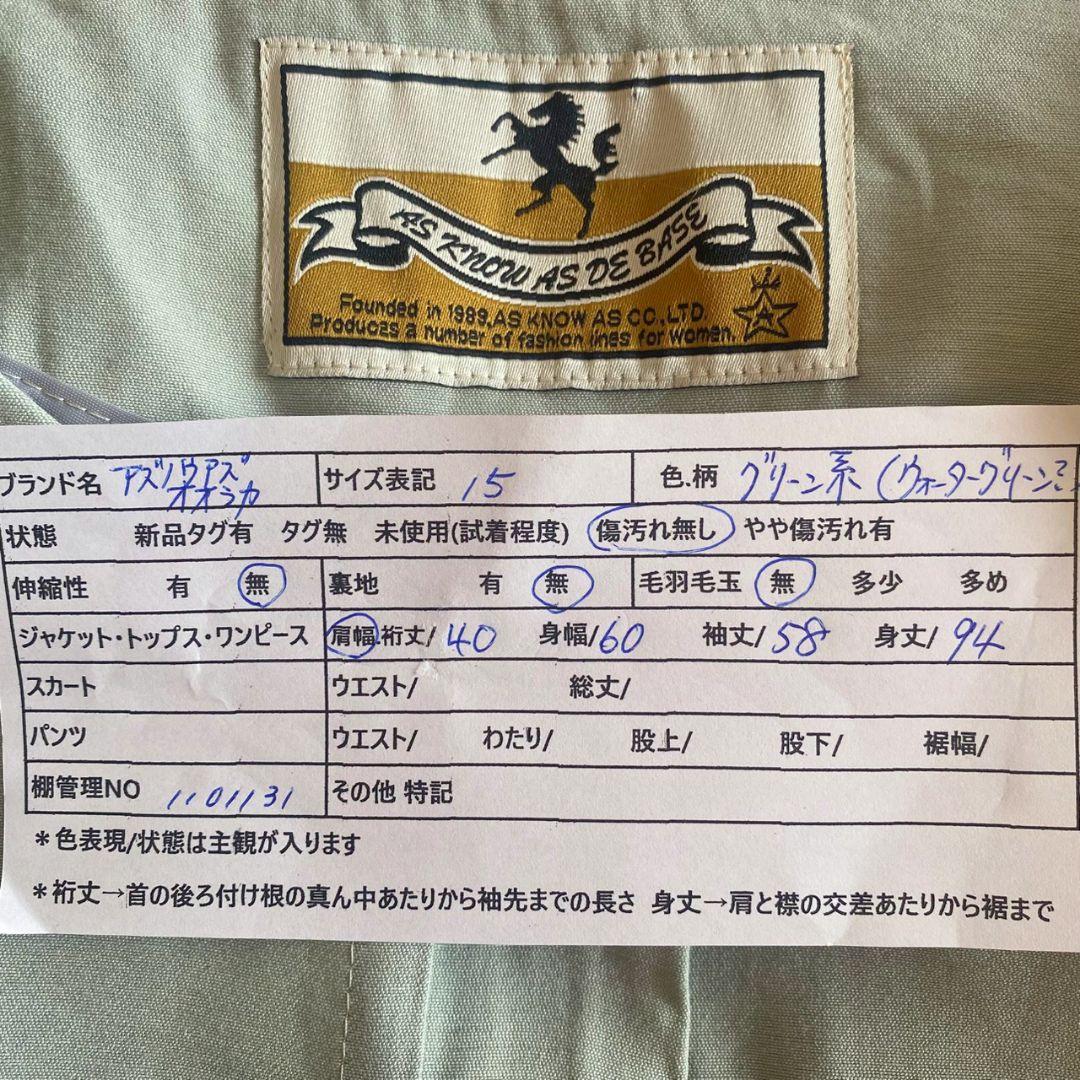 AS KNOW AS DE BASE
Founded in 1989, AS KNOW AS CO.,LTD.
Produces a number of fashion lines for women.
A
ブランド名 アズノウアズ オオラカ サイズ表記 15 色.柄 グリーン系(ウォーターグリーン
状態 新品タグ有 タグ無 未使用(試着程度) 傷汚れ無し やや傷汚れ有
伸縮性 有 無 裏地 有 無 毛羽毛玉 無 多少 多め
ジャケット・トップス・ワンピース 肩幅 裄丈/ 40 身幅/60 袖丈/ 58 身丈/ 94
スカート ウエスト/ 総丈/
パンツ ウエスト/ わたり/ 股上/ 股下/ 裾幅/
棚管理NO 1101131 その他 特記
*色表現/状態は主観が入ります
*裄丈→首の後ろ付け根の真ん中あたりから袖先までの長さ 身丈→肩と襟の交差あたりから裾まで